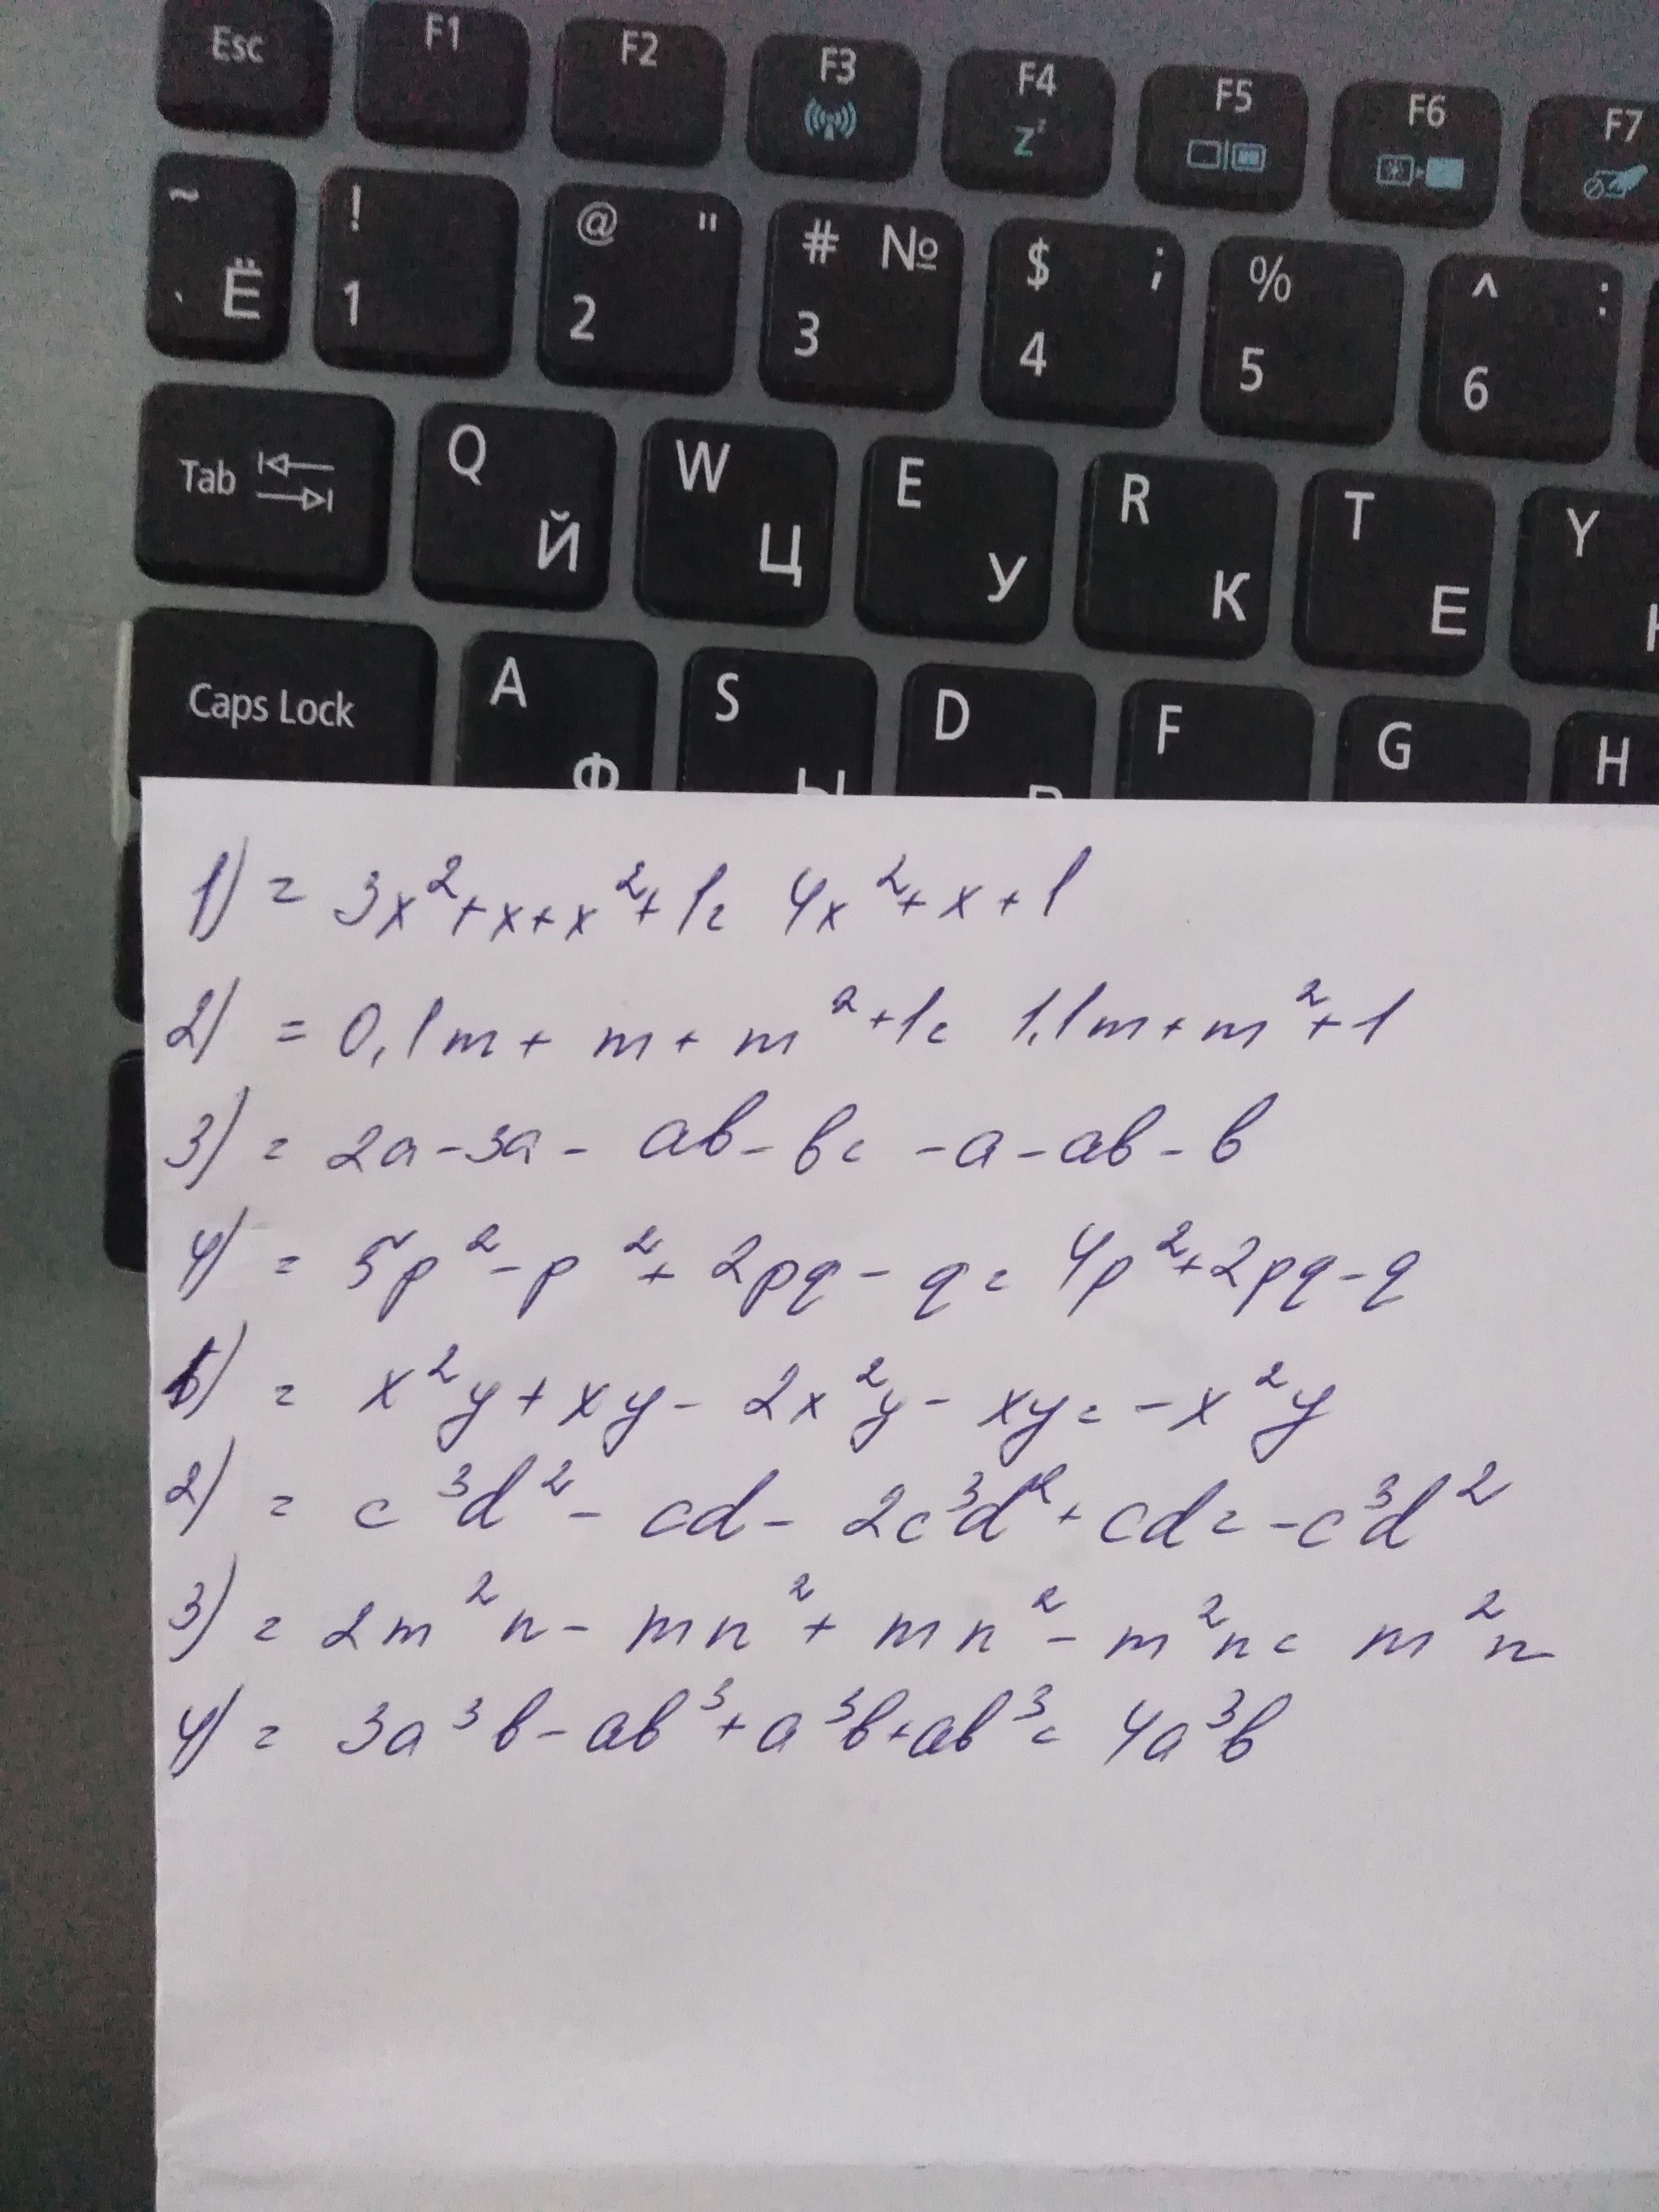 Esc F1 F2 F3 F4 F5 F6 F7
~ ` Ё ! 1 @ " 2 # № 3 $ ; 4 % 5 ^ : 6
Tab Q Й W Ц E У R К T Е Y
Caps Lock A Ф S Ы D F G H
1) = 3x²+x+x²+1= 4x²+x+1
2) = 0,1m + m + m²+1= 1,1m+m²+1
3) = 2a-3a- ab-b= -a-ab-b
4) = 5p²-p²+ 2pq-q= 4p²+2pq-q
1) = x²y+xy- 2x²y- xy= -x²y
2) = c³d²- cd- 2c³d²+cd= -c³d²
3) = 2m²n- mn²+ mn²- m²n= m²n
4) = 3a³b-ab³+a³b+ab³= 4a³b